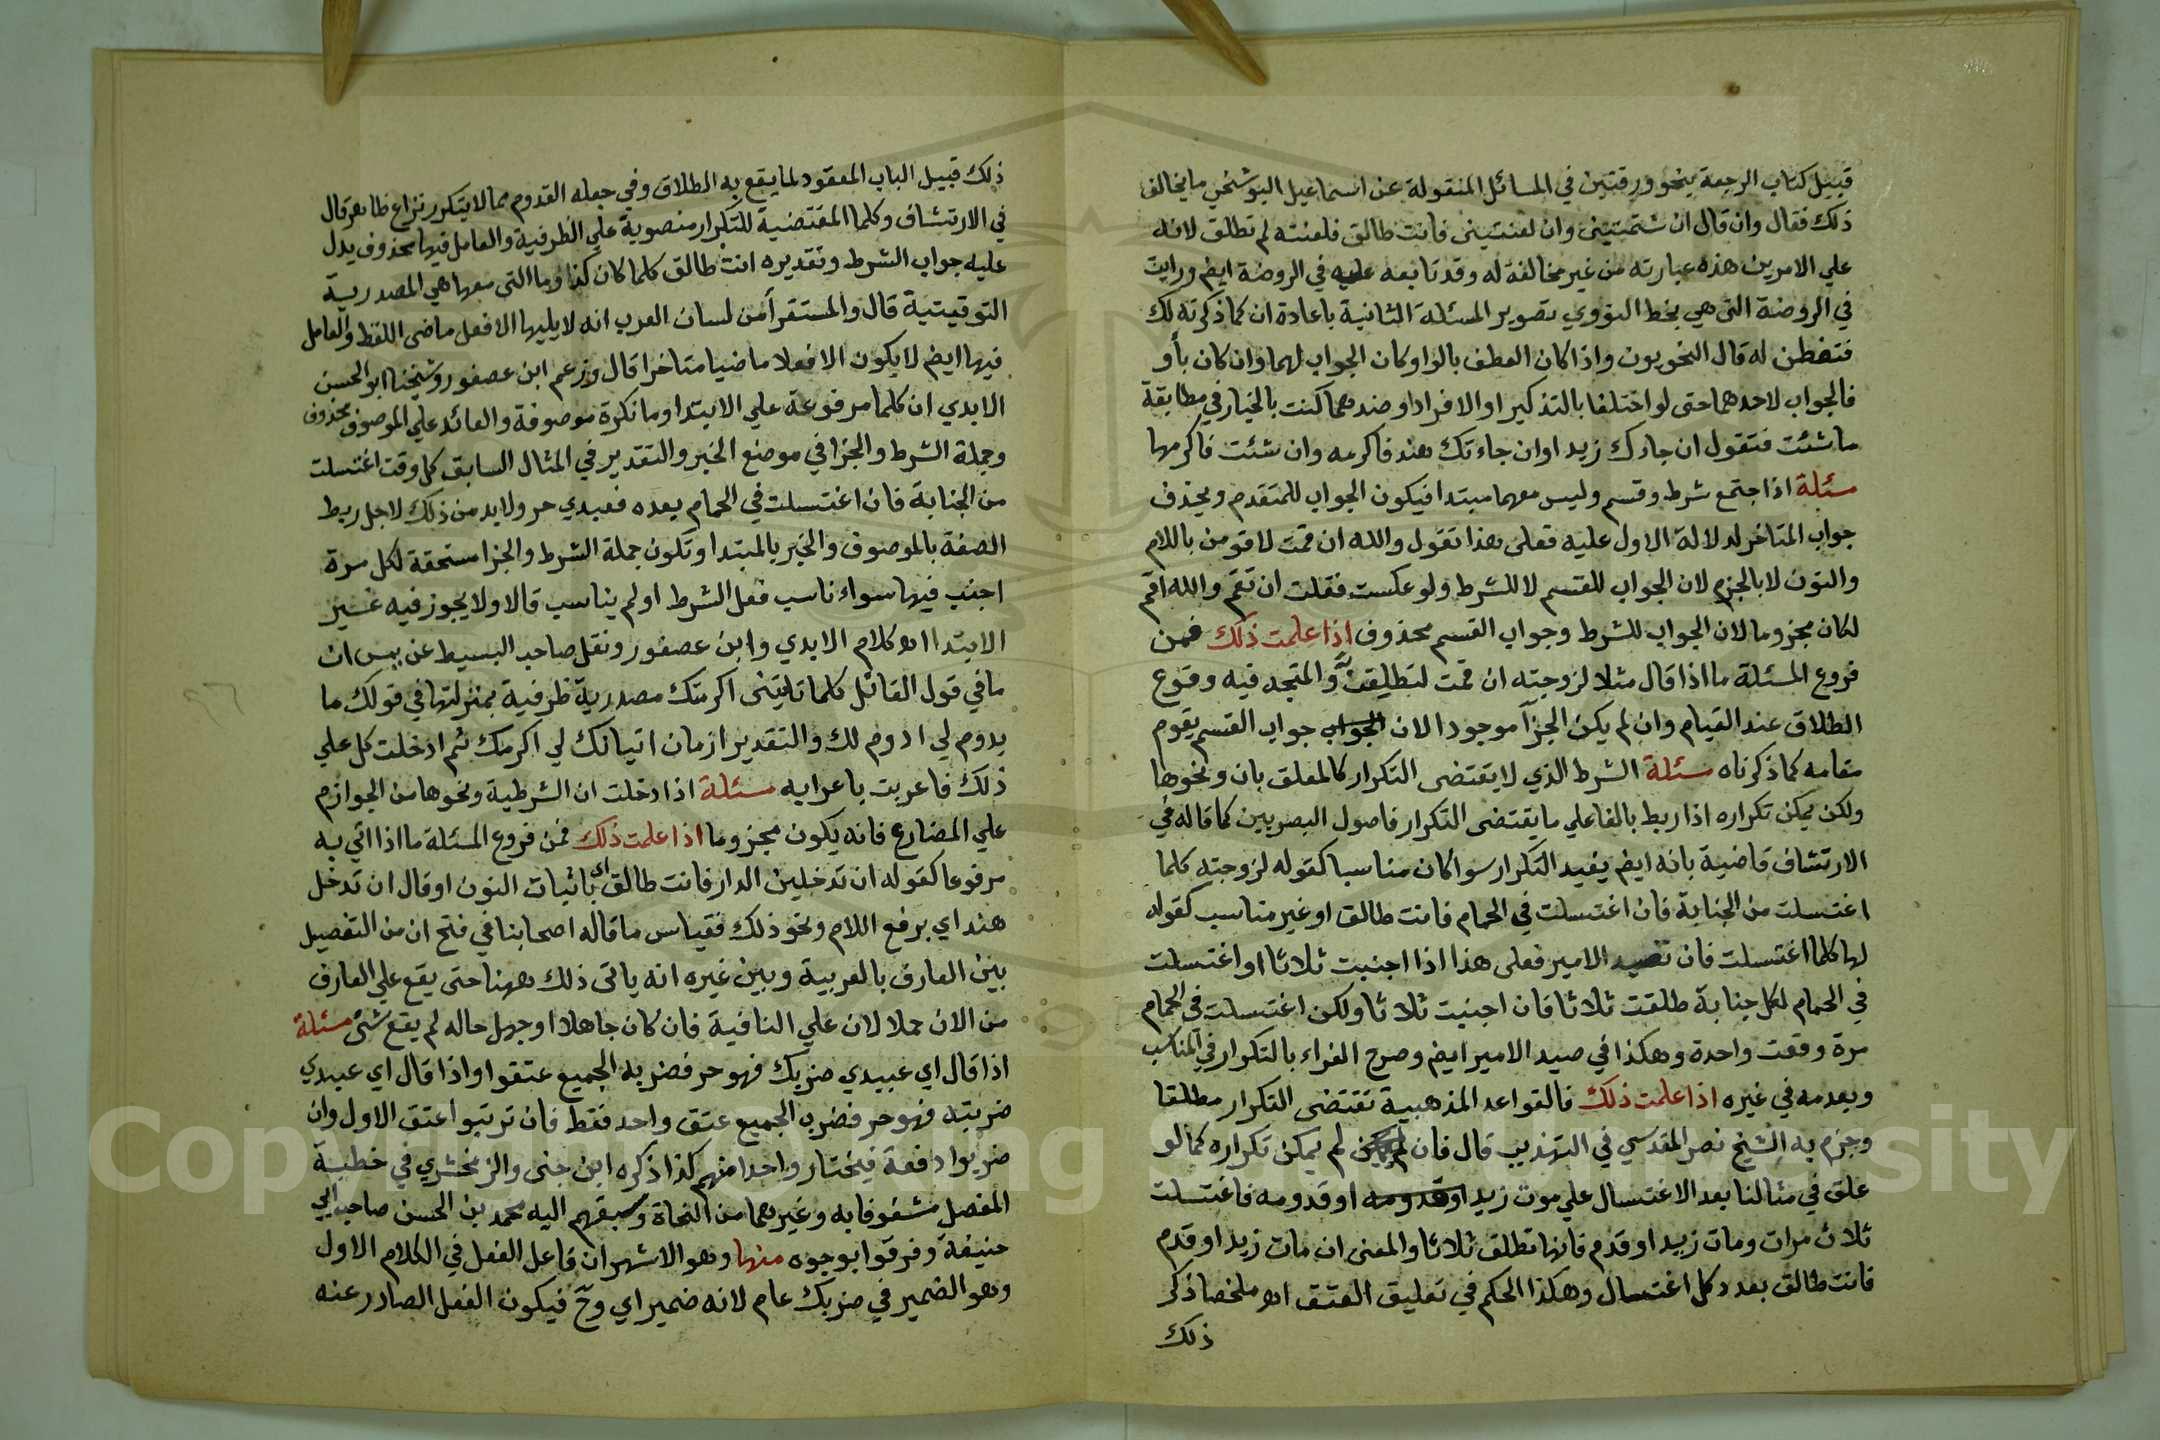 قبيل كتاب الرجعة بنحو ورقتين في المسائل المنقولة عن اسماعيل البوشنجي ما يخالف
ذلك فقال وان قال ان شتمتيني وان لعنتيني فانت طالق فلعنته لم تطلق لانه
علي الامرين هذه عبارته من غير مخالفة له وقد تابعه عليه في الروضة ايض ورايت
في الروضة التي هي بخط النووي تصوير المسئلة الثانية باعادة ان كما ذكرته لك
فتفطن له قال النحويون واذا كان العطف بالواو كان الجواب لهما وان كان بأو
فالجواب لاحدهما حتى لو اختلفا بالتذكير او الافراد او ضدهما كنت بالخيار في مطابقة
ما شئت فتقول ان جاءك زيد او ان جاءتك هند فاكرمه وان شئت فاكرمها
مسئلة اذا اجتمع شرط وقسم وليس معهما مبتدا فيكون الجواب للمتقدم ويحذف
جواب المتاخر لدلالة الاول عليه فعلى هذا تقول والله ان قمت لاقومن باللام
والنون لا بالجزم لان الجواب للقسم لا للشرط ولو عكست فقلت ان تقم والله اقم
لكان مجزوما لان الجواب للشرط وجواب القسم محذوف اذا علمت ذلك فمن
فروع المسئلة ما اذا قال مثلا لزوجته ان قمت لتطلقنَّ والمتجه فيه وقوع
الطلاق عند القيام وان لم يكن الجزآ موجودا لان الجواب جواب القسم يقوم
مقامه كما ذكرناه مسئلة الشرط الذي لا يقتضى التكرار كالمعلق بان ونحوها
ولكن يمكن تكراره اذا ربط بالفا علي ما يقتضى التكرار فاصول البصريين كما قاله في
الارتشاف قاضية بانه ايض يفيد التكرار سوا كان مناسبا كقوله لزوجته كلما
اغتسلت من الجنابة فان اغتسلت في الحمام فانت طالق او غير مناسب كقوله
لها كلما اغتسلت فان تصيد الامير فعلى هذا اذا اجنبت ثلاثا او اغتسلت
في الحمام لكل جنابة طلقت ثلاثا فان اجنبت ثلاثا ولكن اغتسلت في الحمام
مرة وقعت واحدة وهكذا في صيد الامير ايض وصرح الفراء بالتكرار في المناسب
وبعدمه في غيره اذا علمت ذلك فالقواعد المذهبية تقتضى التكرار مطلقا
وجزم به الشيخ نصر المقدسي في التهذيب قال فان لم يمكن تكراره كما لو
علق في مثالنا بعد الاغتسال علي موت زيد او قدومه او قدومه فاغتسلت
ثلاث مرات ومات زيد او قدم فانها تطلق ثلاثا والمعنى ان مات زيد او قدم
فانت طالق بعدد كل اغتسال وهكذا الحكم في تعليق العتق اه ملخصا ذكر
ذلك
ذلك قبيل الباب المعقود لما يقع به الطلاق وفي جعله القدوم مما لا يتكرر نزاع ظاهر قال
في الارتشاف وكلما المقتضية للتكرار منصوبة علي الظرفية والعامل فيها محذوف يدل
عليه جواب الشرط وتقديره انت طالق كلما كان كذا وما التي معها هي المصدرية
التوقيتية قال والمستقرأ من لسان العرب انه لا يليها الا فعل ماضى اللفظ والعامل
فيها ايض لا يكون الا فعلا ماضيا متاخرا قال وزعم ابن عصفور وشيخنا ابو الحسن
الابدي ان كلما مرفوعة علي الابتدا وما نكرة موصوفة والعائد علي الموصوف محذوف
وجملة الشرط والجزا في موضع الخبر والتقدير في المثال السابق كل وقت اغتسلت
من الجنابة فان اغتسلت في الحمام بعده فعبدي حر ولابد من ذلك لاجل ربط
الصفة بالموصوف والخبر بالمبتدا وتكون جملة الشرط والجزا مستحقة لكل مرة
اجنب فيها سواء ناسب فعل الشرط او لم يناسب قالا ولا يجوز فيه غير
الابتدا اه كلام الابدي وابن عصفور ونقل صاحب البسيط عن يس ان
ما في قول القائل كلما تاتيني اكرمتك مصدرية ظرفية بمنزلتها في قولك ما
يدوم لي ادوم لك والتقدير ازمان اتيانك لي اكرمك ثم ادخلت كل علي
ذلك فاعربت باعرابه مسئلة اذا دخلت ان الشرطية ونحوها من الجوازم
علي المضارع فانه يكون مجزوما اذا علمت ذلك فمن فروع المسئلة ما اذا اتي به
مرفوعا كقوله ان تدخلين الدار فانت طالق اي باثبات النون او قال ان تدخل
هند اي برفع اللام ونحو ذلك فقياس ما قاله اصحابنا في فتح ان من التفصيل
بين العارف بالعربية وبين غيره انه ياتى ذلك ههنا حتى يقع علي العارف
من الان حملا لان علي النافية فان كان جاهلا او جهل حاله لم يقع شئ مسئلة
اذا قال اي عبيدي ضربك فهو حر فضربه الجميع عتقوا واذا قال اي عبيدي
ضربته فهو حر فضرب الجميع عتق واحد فقط فان ترتبوا عتق الاول وان
ضربوا دفعة فيختار واحدا منهم كذا ذكره ابن جنى والزمخشري في خطبة
المفصل مشغوفا به وغيرهما من النحاة وسبقهم اليه محمد بن الحسن صاحب ابي
حنيفة وفرقوا بوجوه منها وهو الاشهر ان فاعل الفعل في الكلام الاول
وهو الضمير في ضربك عام لانه ضمير اي وح فيكون الفعل الصادر عنه